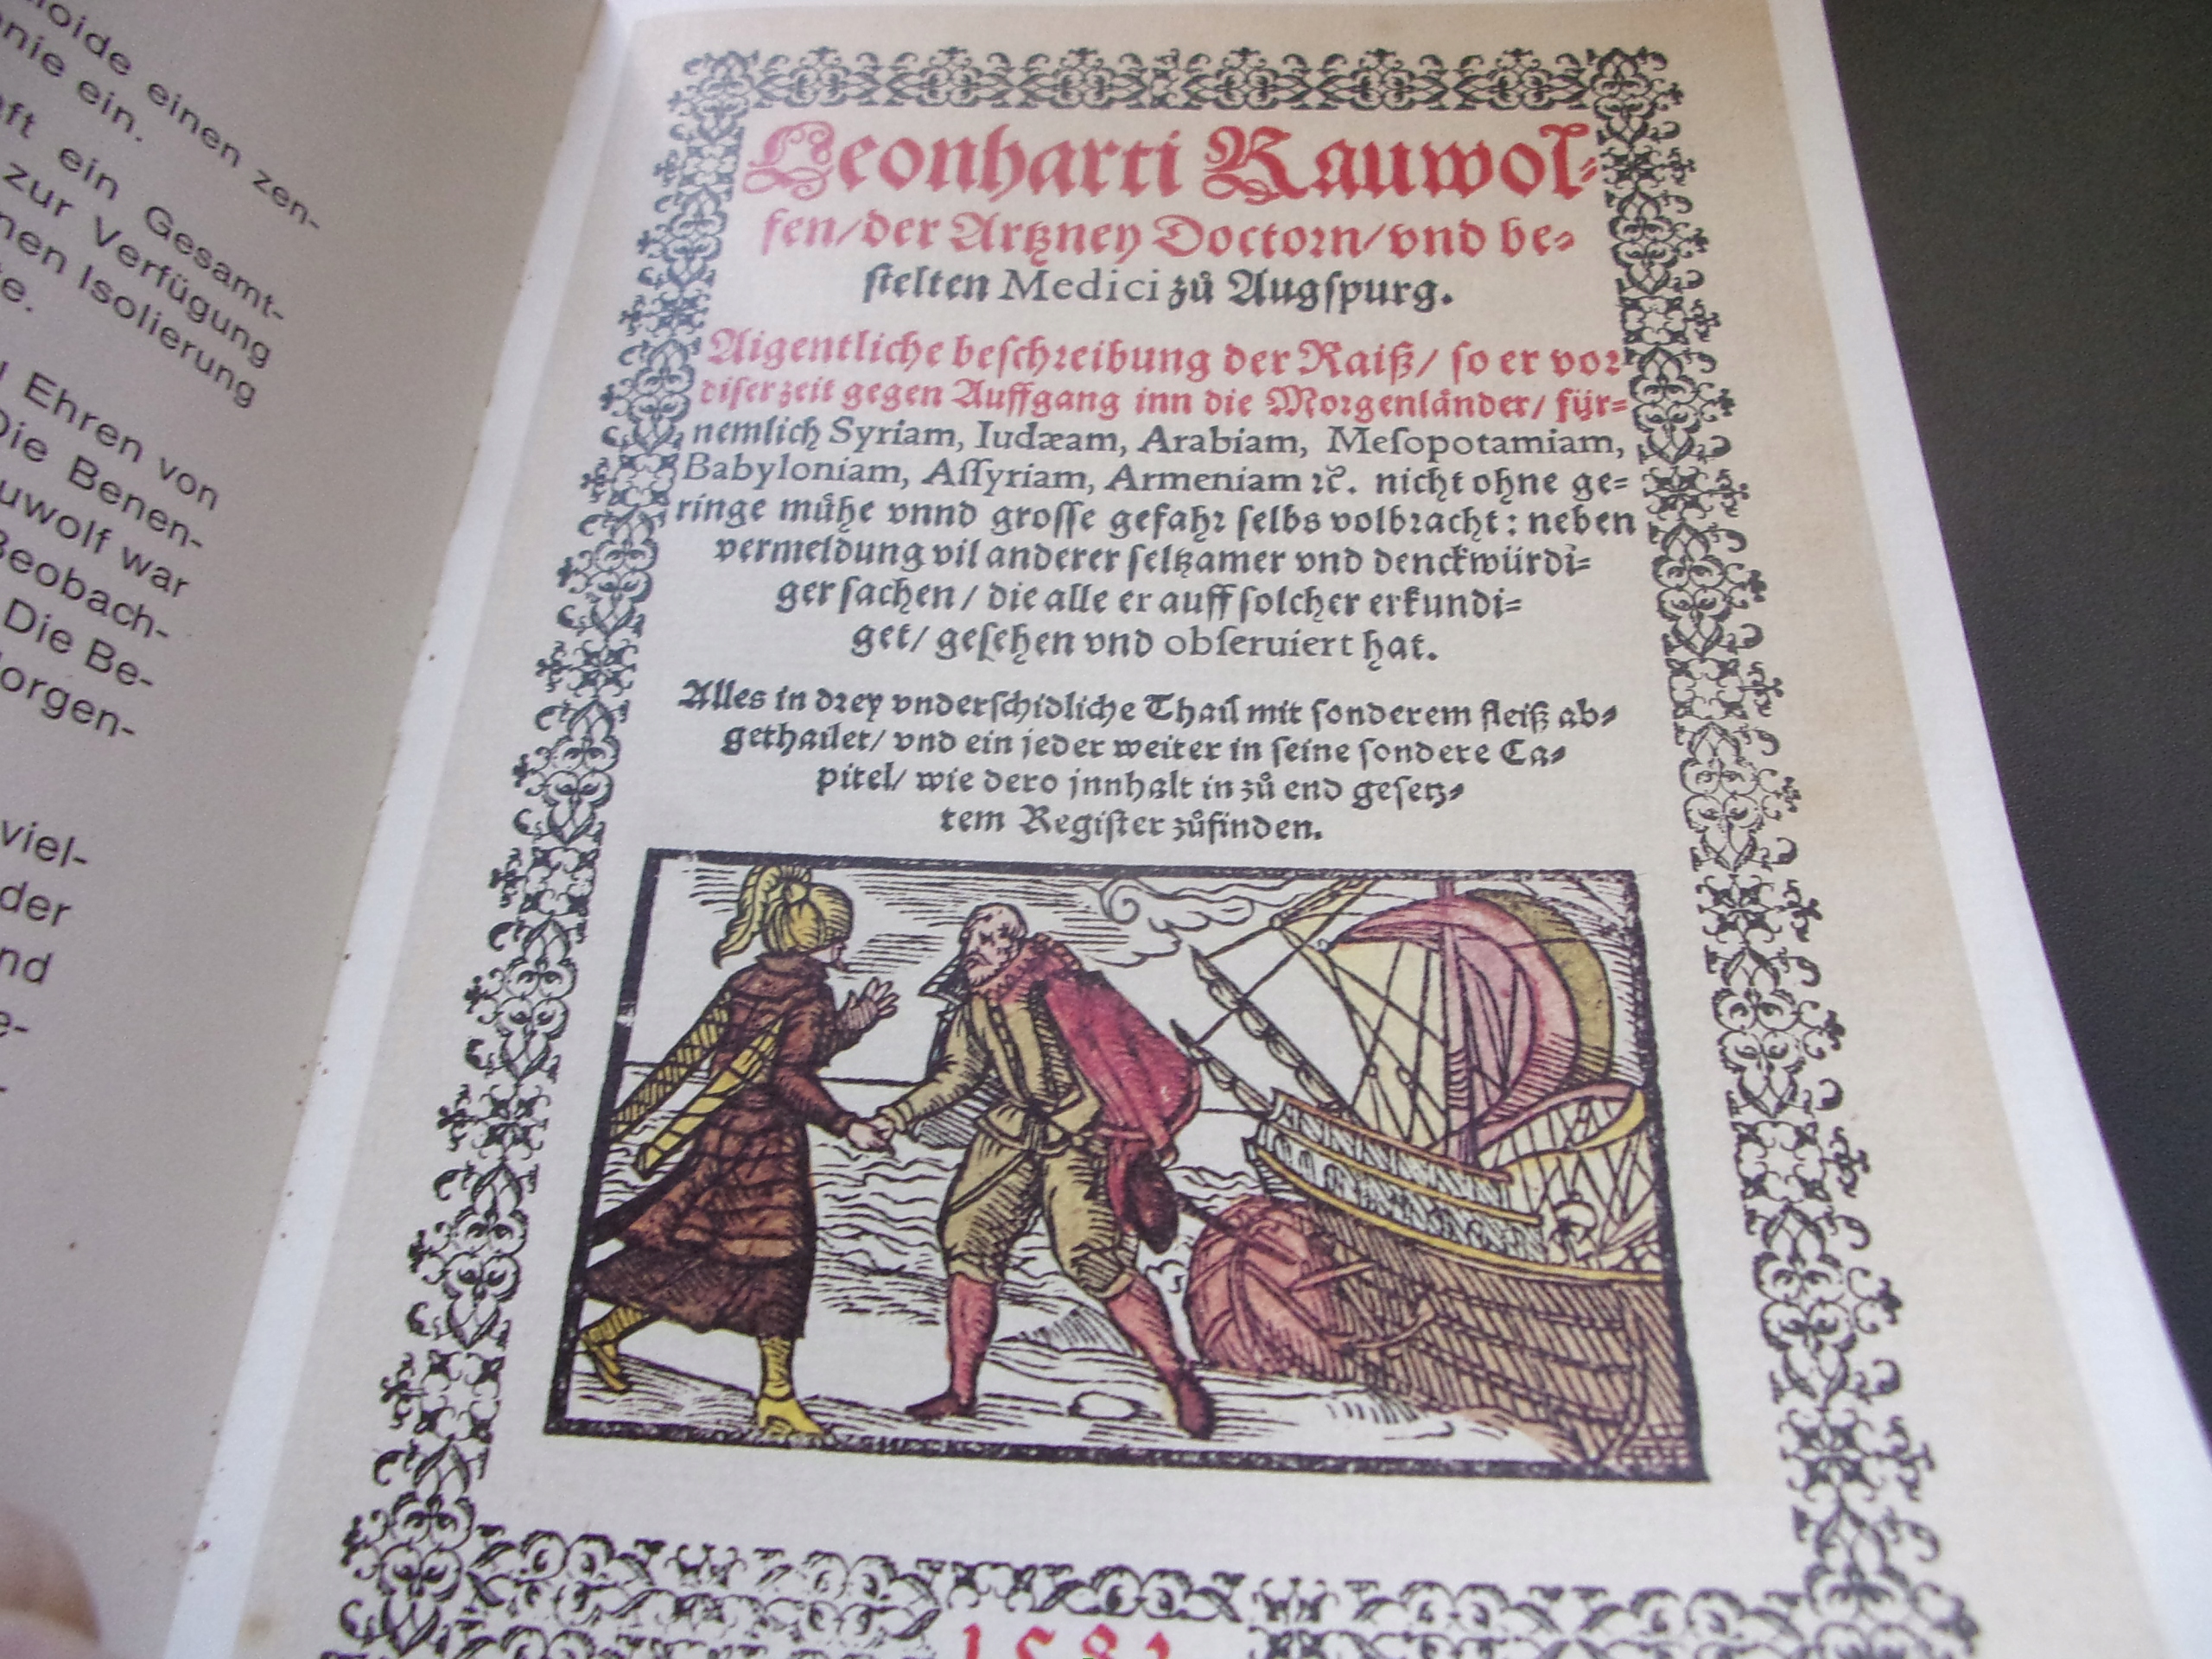 einen zen-
nie ein.
ein Gesamt-
zur Verfügung
Isolierung
Ehren von
Die Benen-
uwolf war
Beobach-
Die Be-
orgen-
viel-
der
nd
e-
Leonharti Rauwol⸗
fen/der Artzney Doctorn/vnd be⸗
ſtelten Medici zů Augſpurg.
Aigentliche beſchreibung der Raiß/ ſo er vor
diſer zeit gegen Auffgang inn die Morgenlånder/ für⸗
nemlich Syriam, Iudæam, Arabiam, Meſopotamiam,
Babyloniam, Aſſyriam, Armeniam ꝛc. nicht ohne ge⸗
ringe můhe vnnd groſſe gefahr ſelbs volbracht: neben
vermeldung vil anderer ſeltzamer vnd denckwürdi⸗
ger ſachen/ die alle er auff ſolcher erkundi⸗
get/ geſehen vnd obſeruiert hat.
Alles in drey vnderſchidliche Thail mit ſonderem fleiß ab⸗
gethailet/ vnd ein jeder weiter in ſeine ſondere Ca⸗
pitel/ wie dero jnnhalt in zů end geſetz⸗
tem Regiſter zůfinden.